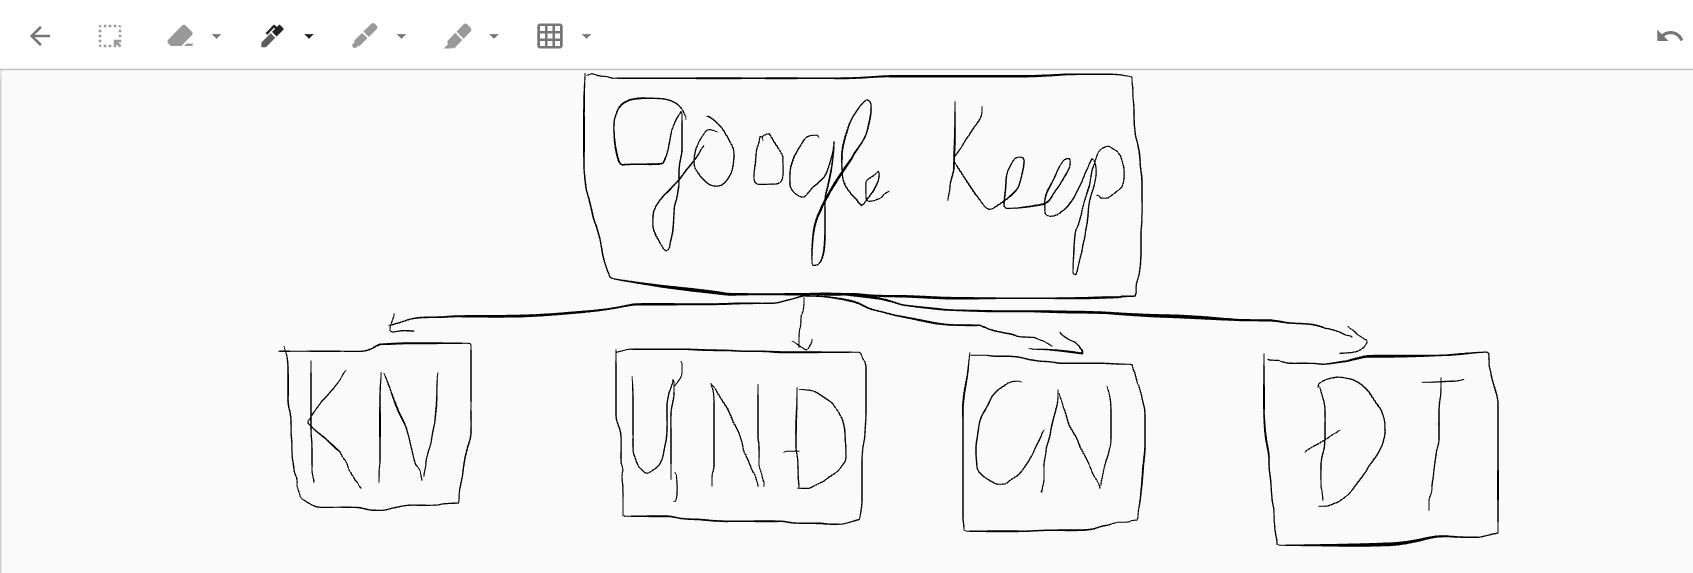 google Keep
KN
ƯND
CN
ĐT